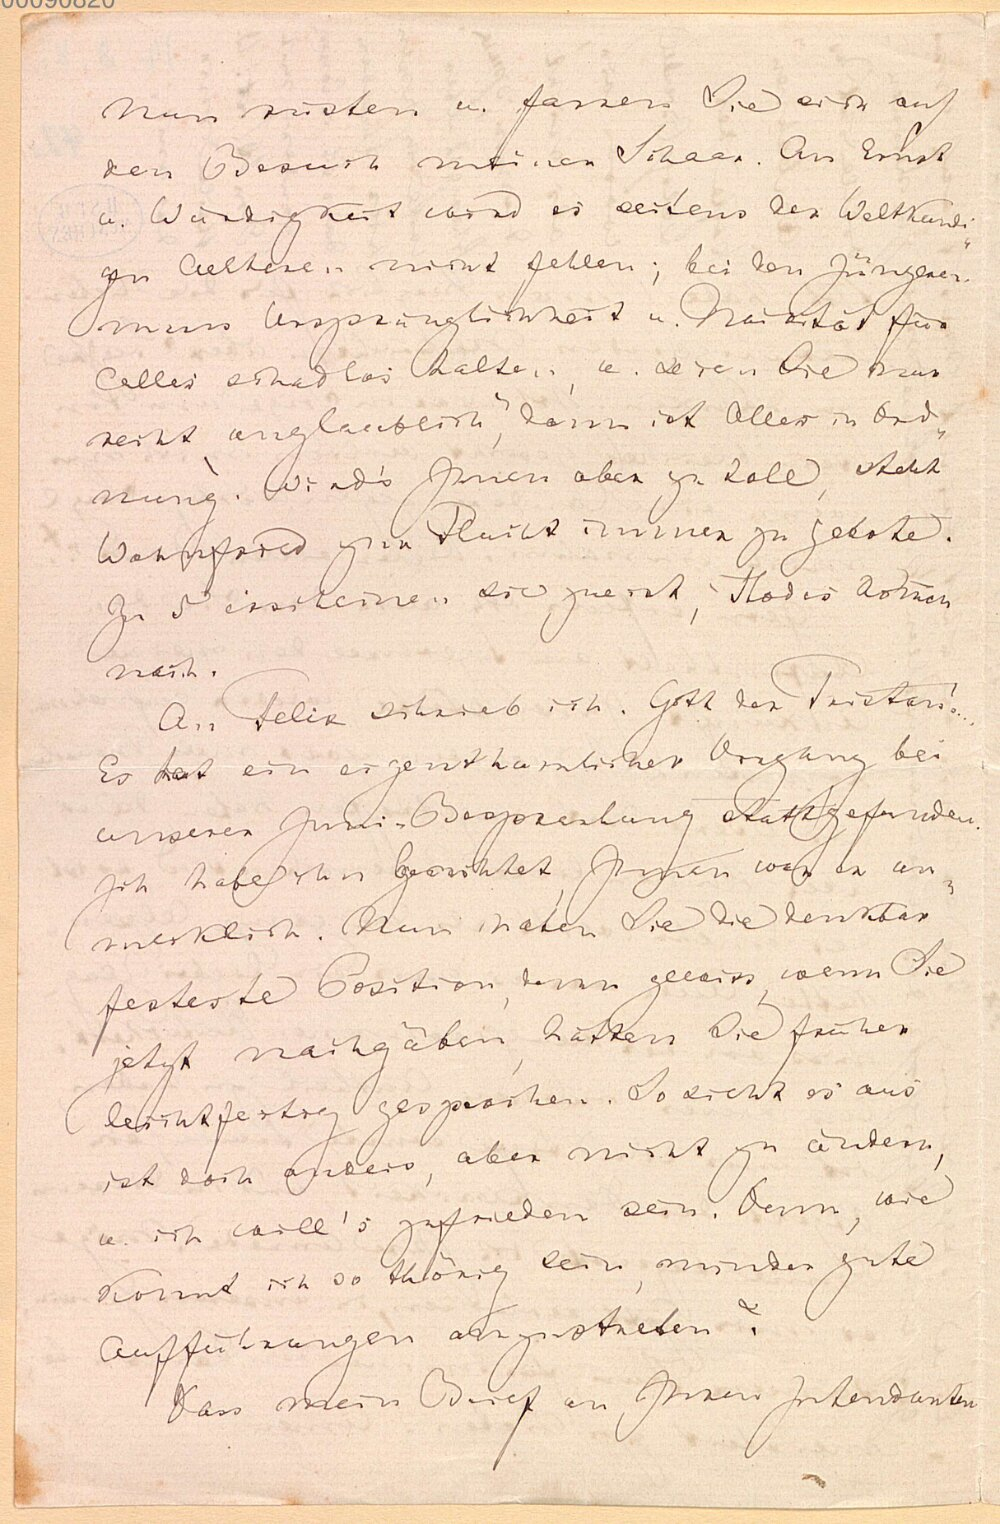 00090820
Nun rüsten u. fassen Sie sich auf
den Besuch meiner Schaar. An Ernst
u. Würdigkeit wird es seitens der Weltkundi-
gen Aelteren nicht fehlen; bei den Jüngeren
muss Ursprünglichkeit u. Naivität für
Alles schadlos halten, u. sind Sie nur
recht „unglaublich", dann ist Alles in Ord-
nung. Wird's Ihnen aber zu toll, steht
Wahnfried zur Flucht immer zu Gebote.
Zu 5 erscheinen sie zuerst, Thodes kommen
nach.
An Felix schrieb ich. Gott der Tristan!...
Es hat ein eigenthümlicher Vorgang bei
unserer Juni-Besprechung stattgefunden.
Ich habe ihn beachtet, Ihnen war er un-
merklich. Nun haben Sie die denkbar
festeste Position, denn gewiss, wenn Sie
jetzt nachgäben, hätten Sie früher
leichtfertig gesprochen. So sieht es aus
ist doch anders, aber nicht zu ändern,
u. ich will's zufrieden sein. Denn, wie
konnt ich so thörig sein, minder gute
Aufführungen anzustreben?
Dass mein Brief an Ihren Intendanten